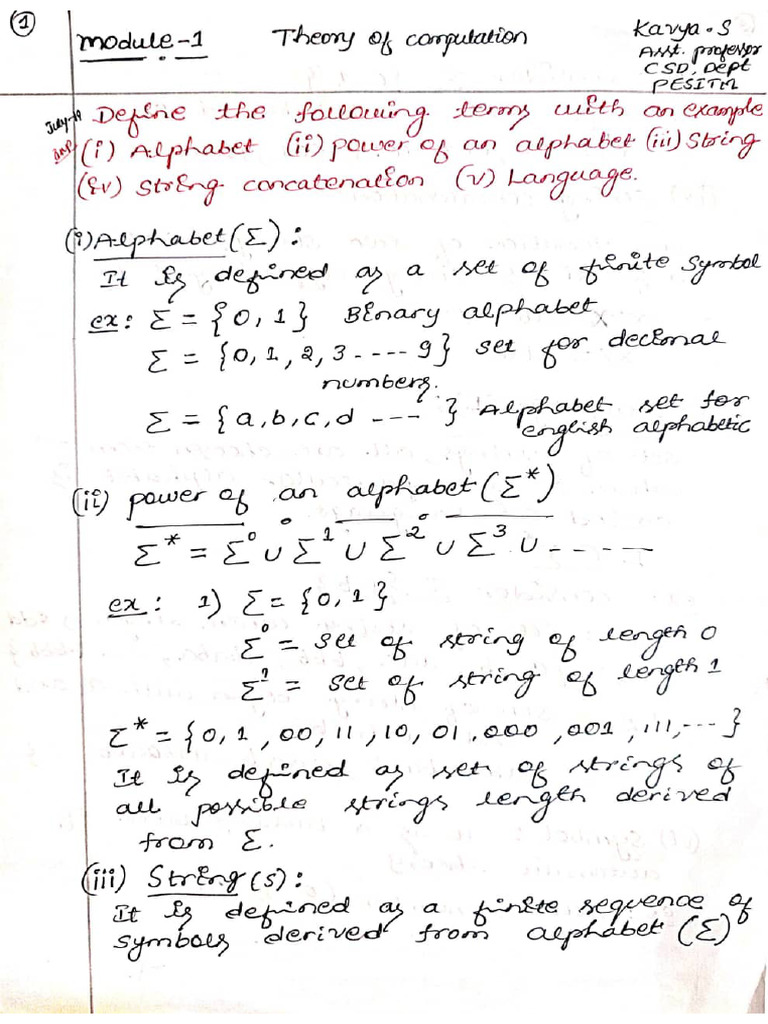 ①
Module-1 Theory of computation
Kavya.S
Asst. professor
CSD, Dept
PESITM
July-19
imp
Define the following terms with an example
(i) Alphabet (ii) power of an alphabet (iii) String
(iv) String concatenation (v) Language.
(i) Alphabet (Σ) :
It is defined as a set of finite symbol
ex: Σ = {0, 1} Binary alphabet
Σ = {0, 1, 2, 3 - - - - 9} set for decimal
numbers.
Σ = {a, b, c, d - - - } Alphabet set for
english alphabetic
(ii) power of an alphabet (Σ*)
Σ* = Σ⁰ ∪ Σ¹ ∪ Σ² ∪ Σ³ ∪ - - - - -
ex : 1) Σ = {0, 1}
Σ⁰ = set of string of length 0
Σ¹ = set of string of length 1
Σ* = {0, 1, 00, 11, 10, 01, 000, 001, 111, --- }
It is defined as set of strings of
all possible strings length derived
from Σ.
(iii) String (s) :
It is defined as a finite sequence of
symbols derived from alphabet (Σ)